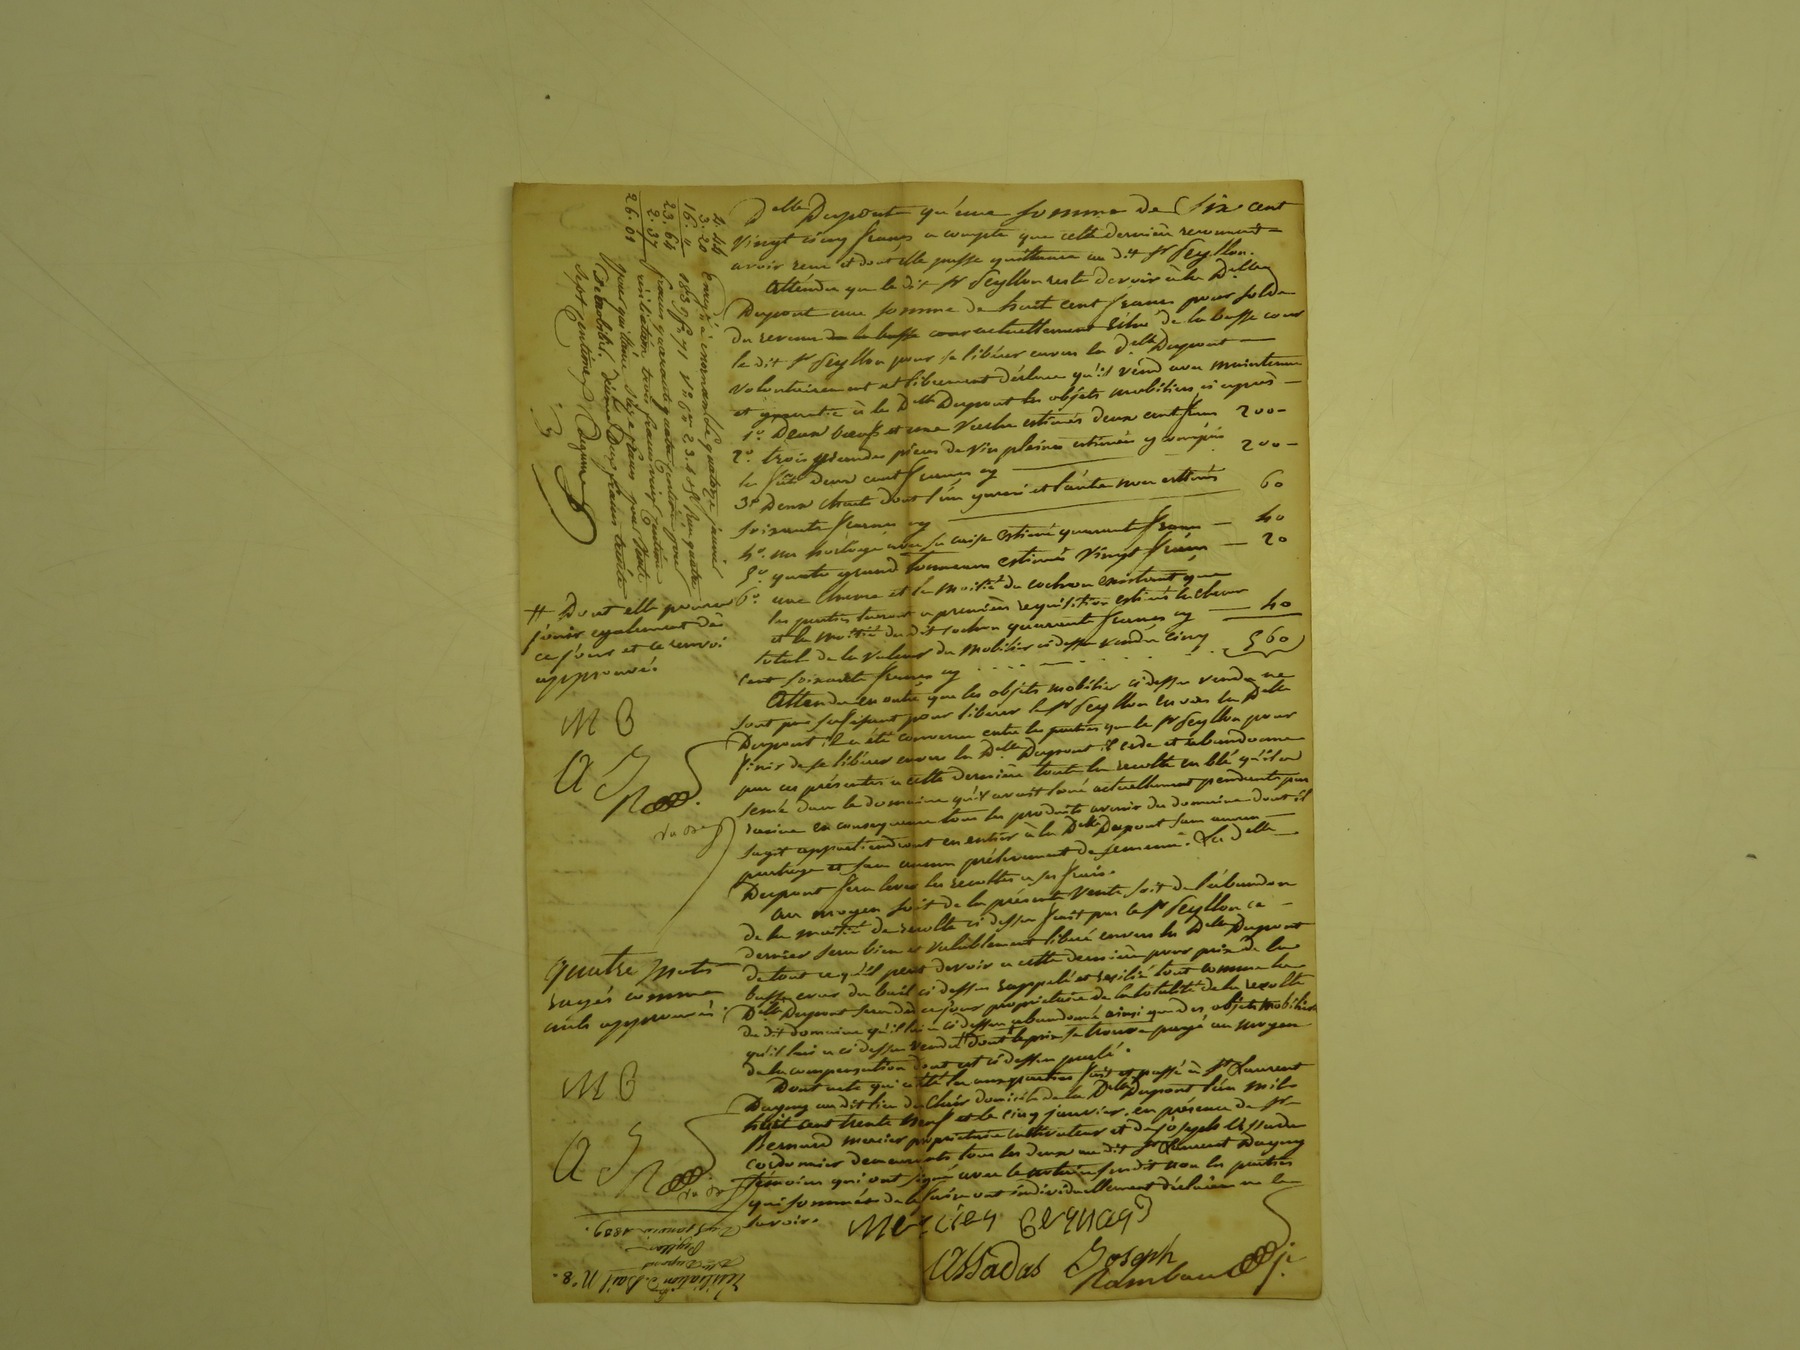 Delle Dupont qu'une somme de Six cent
vingt cinq francs a compte que cette dernière reconnait
avoir reçu et dont elle passe quittance au dit Sr Peyllon.
Attendu que le dit Sr Peyllon reste devoir à la Delle
Dupont une somme de huit cent francs pour solde
du revenu de la basse cour actuellement de la basse cour
le dit Sr Peyllon pour se libérer envers la Delle Dupont
volontairement et librement déclare qu'il vend avec maintenue
et garantie à la Delle Dupont les objets mobiliers ci après
1o Deux bœufs et une vache estimés deux cent francs 200-
2o trois grandes pièces de vin pleines estimées y compris
le fût deux cent francs cy 200-
3o Deux chars dont l'un garni et l'autre non estimés
soixante francs cy 60
4o un horloge avec sa caisse estimé quarante francs 40
5o quatre grand tonneaux estimés vingt francs 20
6o une chèvre et la moitié du cochon existant que
les parties tueront a première requisition estimés la chèvre
et la moitié du dit cochon quarante francs cy 40
total de la valeur du mobilier ci dessus vendu cinq 560
cent soixante francs cy
Attendu en outre que les objets mobilier ci dessus vendu ne
sont pas suffisant pour libérer le Sr Peyllon envers la Delle
Dupont il a été convenu entre les parties que le Sr Peyllon pour
finir de se libérer envers la Delle Dupont il cède et abandonne
par ces présentes a cette dernière toute la recolte en blé qu'il a
semé dans le domaine qu'il avait loué actuellement pendante par
racine en consequence tous les produits avenir du domaine dont il
s'agit appartiendront en entier à la Delle Dupont sans aucun
partage et sans aucun prélevement de semence. La Delle
Dupont fera lever les recoltes a ses frais.
Au moyen soit de la présente vente soit de l'abandon
de la moitié de recolte ci dessus fait par le Sr Peyllon ce
dernier sera bien et valablement libéré envers la Delle Dupont
de tout ce qu'il peut devoir a cette dernière pour prix de la
basse cour du bail ci dessus rappelé et resilié tout comme la
Delle Dupont sera dès ce jour propriétaire de la totalité de la recolte
du dit domaine qu'il lui a ci dessus abandonné ainsi que des objets mobiliers
qu'il lui a ci dessus vendu # dont le prix se trouve payé au moyen
de la compensation dont est ci dessus parlé.
Dont acte qui a été lu aux parties fait et passé à St Laurent
Dagny au dit lieu du domicile de la Delle Dupont l'an mil
huit cent trente neuf et le cinq janvier, en présence de Sr
Bernard mercier propriétaire cultivateur et de Joseph Assada
cordonnier demeurants tous les deux au dit St Laurent Dagny
témoins qui ont signé avec le notaire susdit non les parties
qui sommées de le faire ont individuellement déclaré ne le
savoir.
Mercier Bernard
Assadas Joseph
Rambaud
2.44
3.20
16. "
23.64
2.37
26.01
le quatorze janvier
1839 fo 71 Vo
# Dont elle pourra
jouir egalement dès
ce jour et ce renvoi
approuvé.
M B
A J
Quatre mots
rayés comme
nuls approuvés.
M B
A J
Du 5 janvier 1839.
Peyllon
Delle Dupont
Résiliation de Bail No 8.